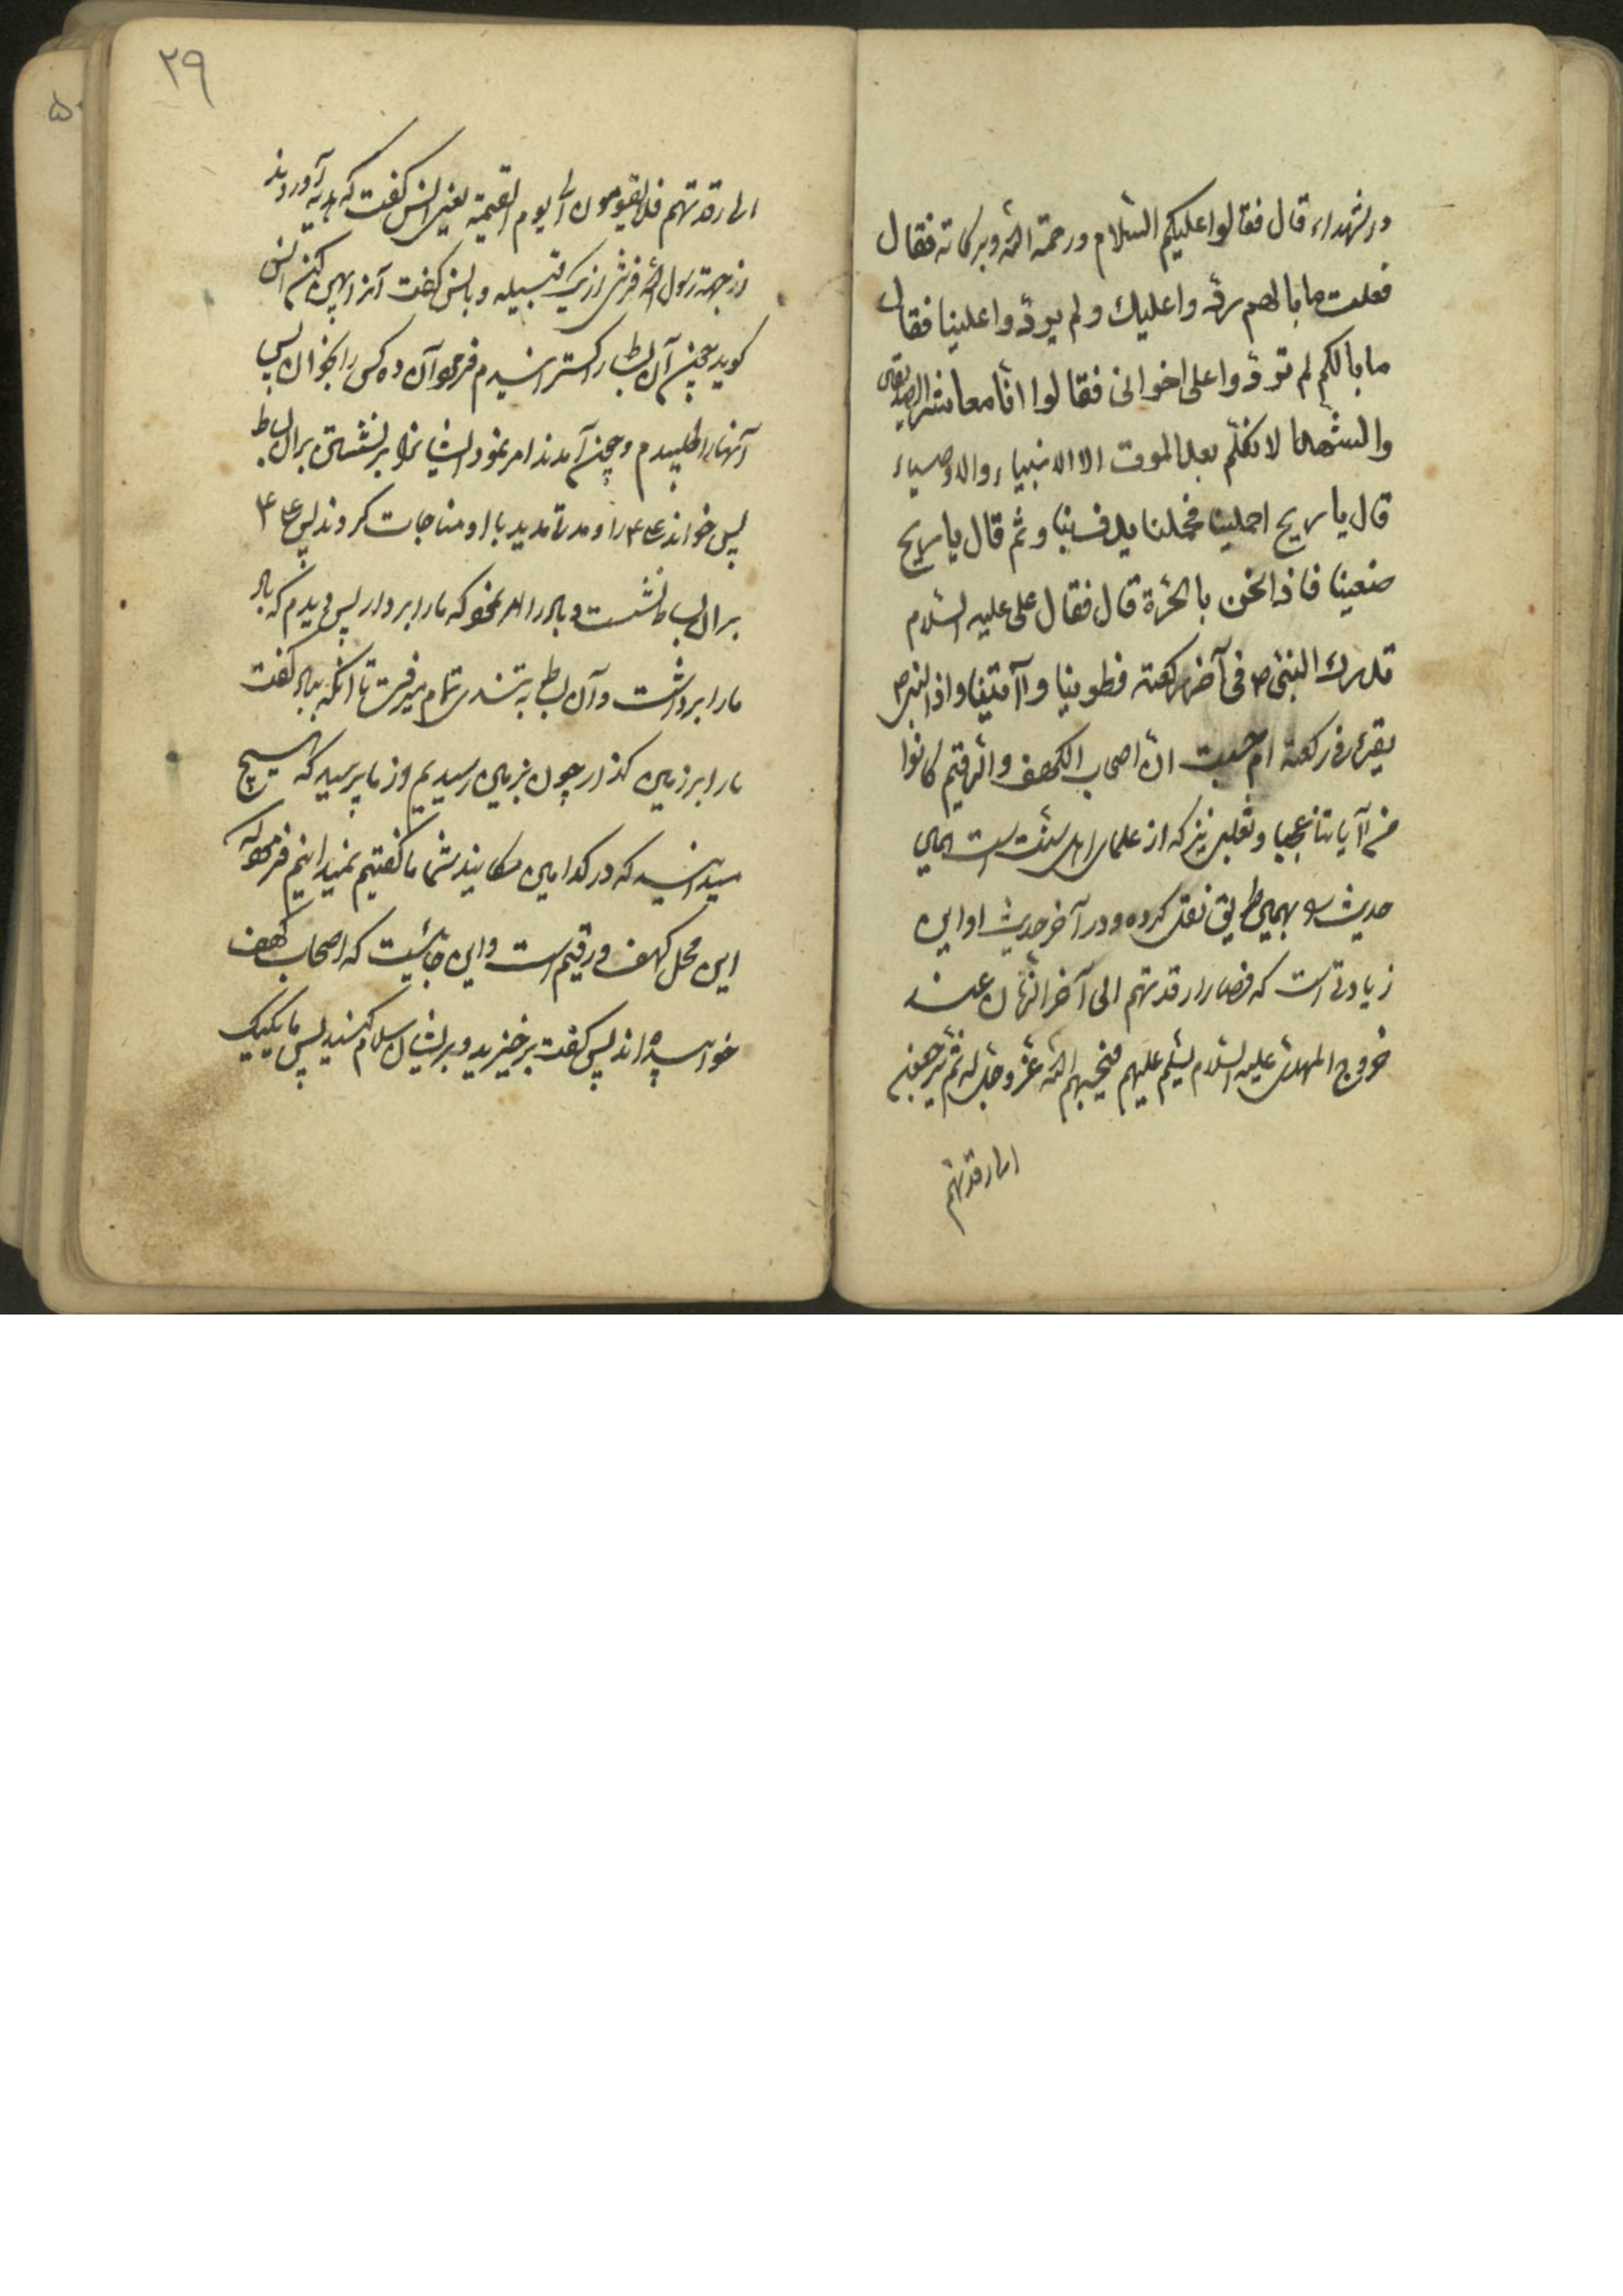 والشهداء قال فقالوا عليكم السلام ورحمة الله وبركاته فقال
فقلت ما بالهم ردّوا عليك ولم يردّوا علينا فقال
ما بالكم لم تردّوا على اخوانى فقالوا انّا معاشر الصديقين
والشهدا لا نكلّم بعد الموت الا الانبياء والاوصياء
قال يا ريح احملينا فحملنا يدف بنا وثم قال يا ريح
ضعينا فاذا نحن بالحرّة قال فقال على عليه السلام
ندرك النبى ص فى آخر ركعته فطوينا وآتينا واذا النبى ص
يقرء فى ركعته ام حسبت ان اصحاب الكهف والرقيم كانوا
من آياتنا عجبا وثعلبى نيز كه از علماى اهل سنت است همين
حديث را بهمين طريق نقل كرده ودر آخر حديث او اين
زيادتى است كه فصاروا رقدتهم الى آخر الزمان عند
خروج المهدى عليه السلام يسلّم عليهم فيحييهم الله عزّ وجلّ له ثم يرجعون
الى رقدتهم
۲۹
۵۰
الى رقدتهم فلا يقومون الى يوم القيمة يعنى انس كفت كه هديه آوردند
از جهة رسول الله فرشى از يك قبيله وبانس كفت آنرا پهن كن انس
كويد چون آن بساط را كسترانيدم فرمود آن ده كس را بخوان پس
آنهارا طلبيدم وچون آمدند امر نمود ايشانرا بر نشستن بران بساط
پس خواند على ع را ومدتى مديد با او مناجات كردند پس على ع
بران بساط نشست وباد را امر نمود كه مارا بردار پس ديدم كه باد
مارا برداشت وآن بساط به تندى تمام ميرفت تا آنكه بباد كفت
مارا بر زمين كذار چون بزمين رسيديم از ما پرسيد كه هيچ
ميدانيد كه در كدامين مكانيد شما ما كفتيم نميدانيم فرمود كه
اين محل كهف ورقيم است واين جائيست كه اصحاب كهف
خوابيده اند پس كفت برخيزيد وبرايشان سلام كنيد پس ما يكيك